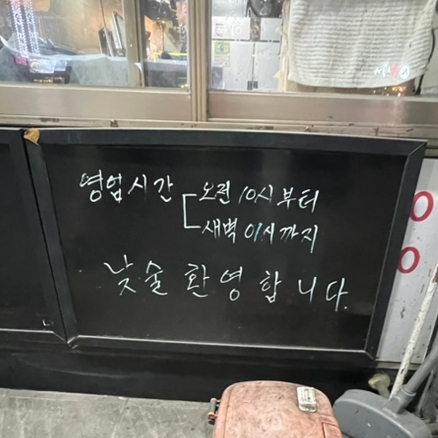 영업시간 오전 10시부터
새벽 01시까지
낮술 환영합니다.